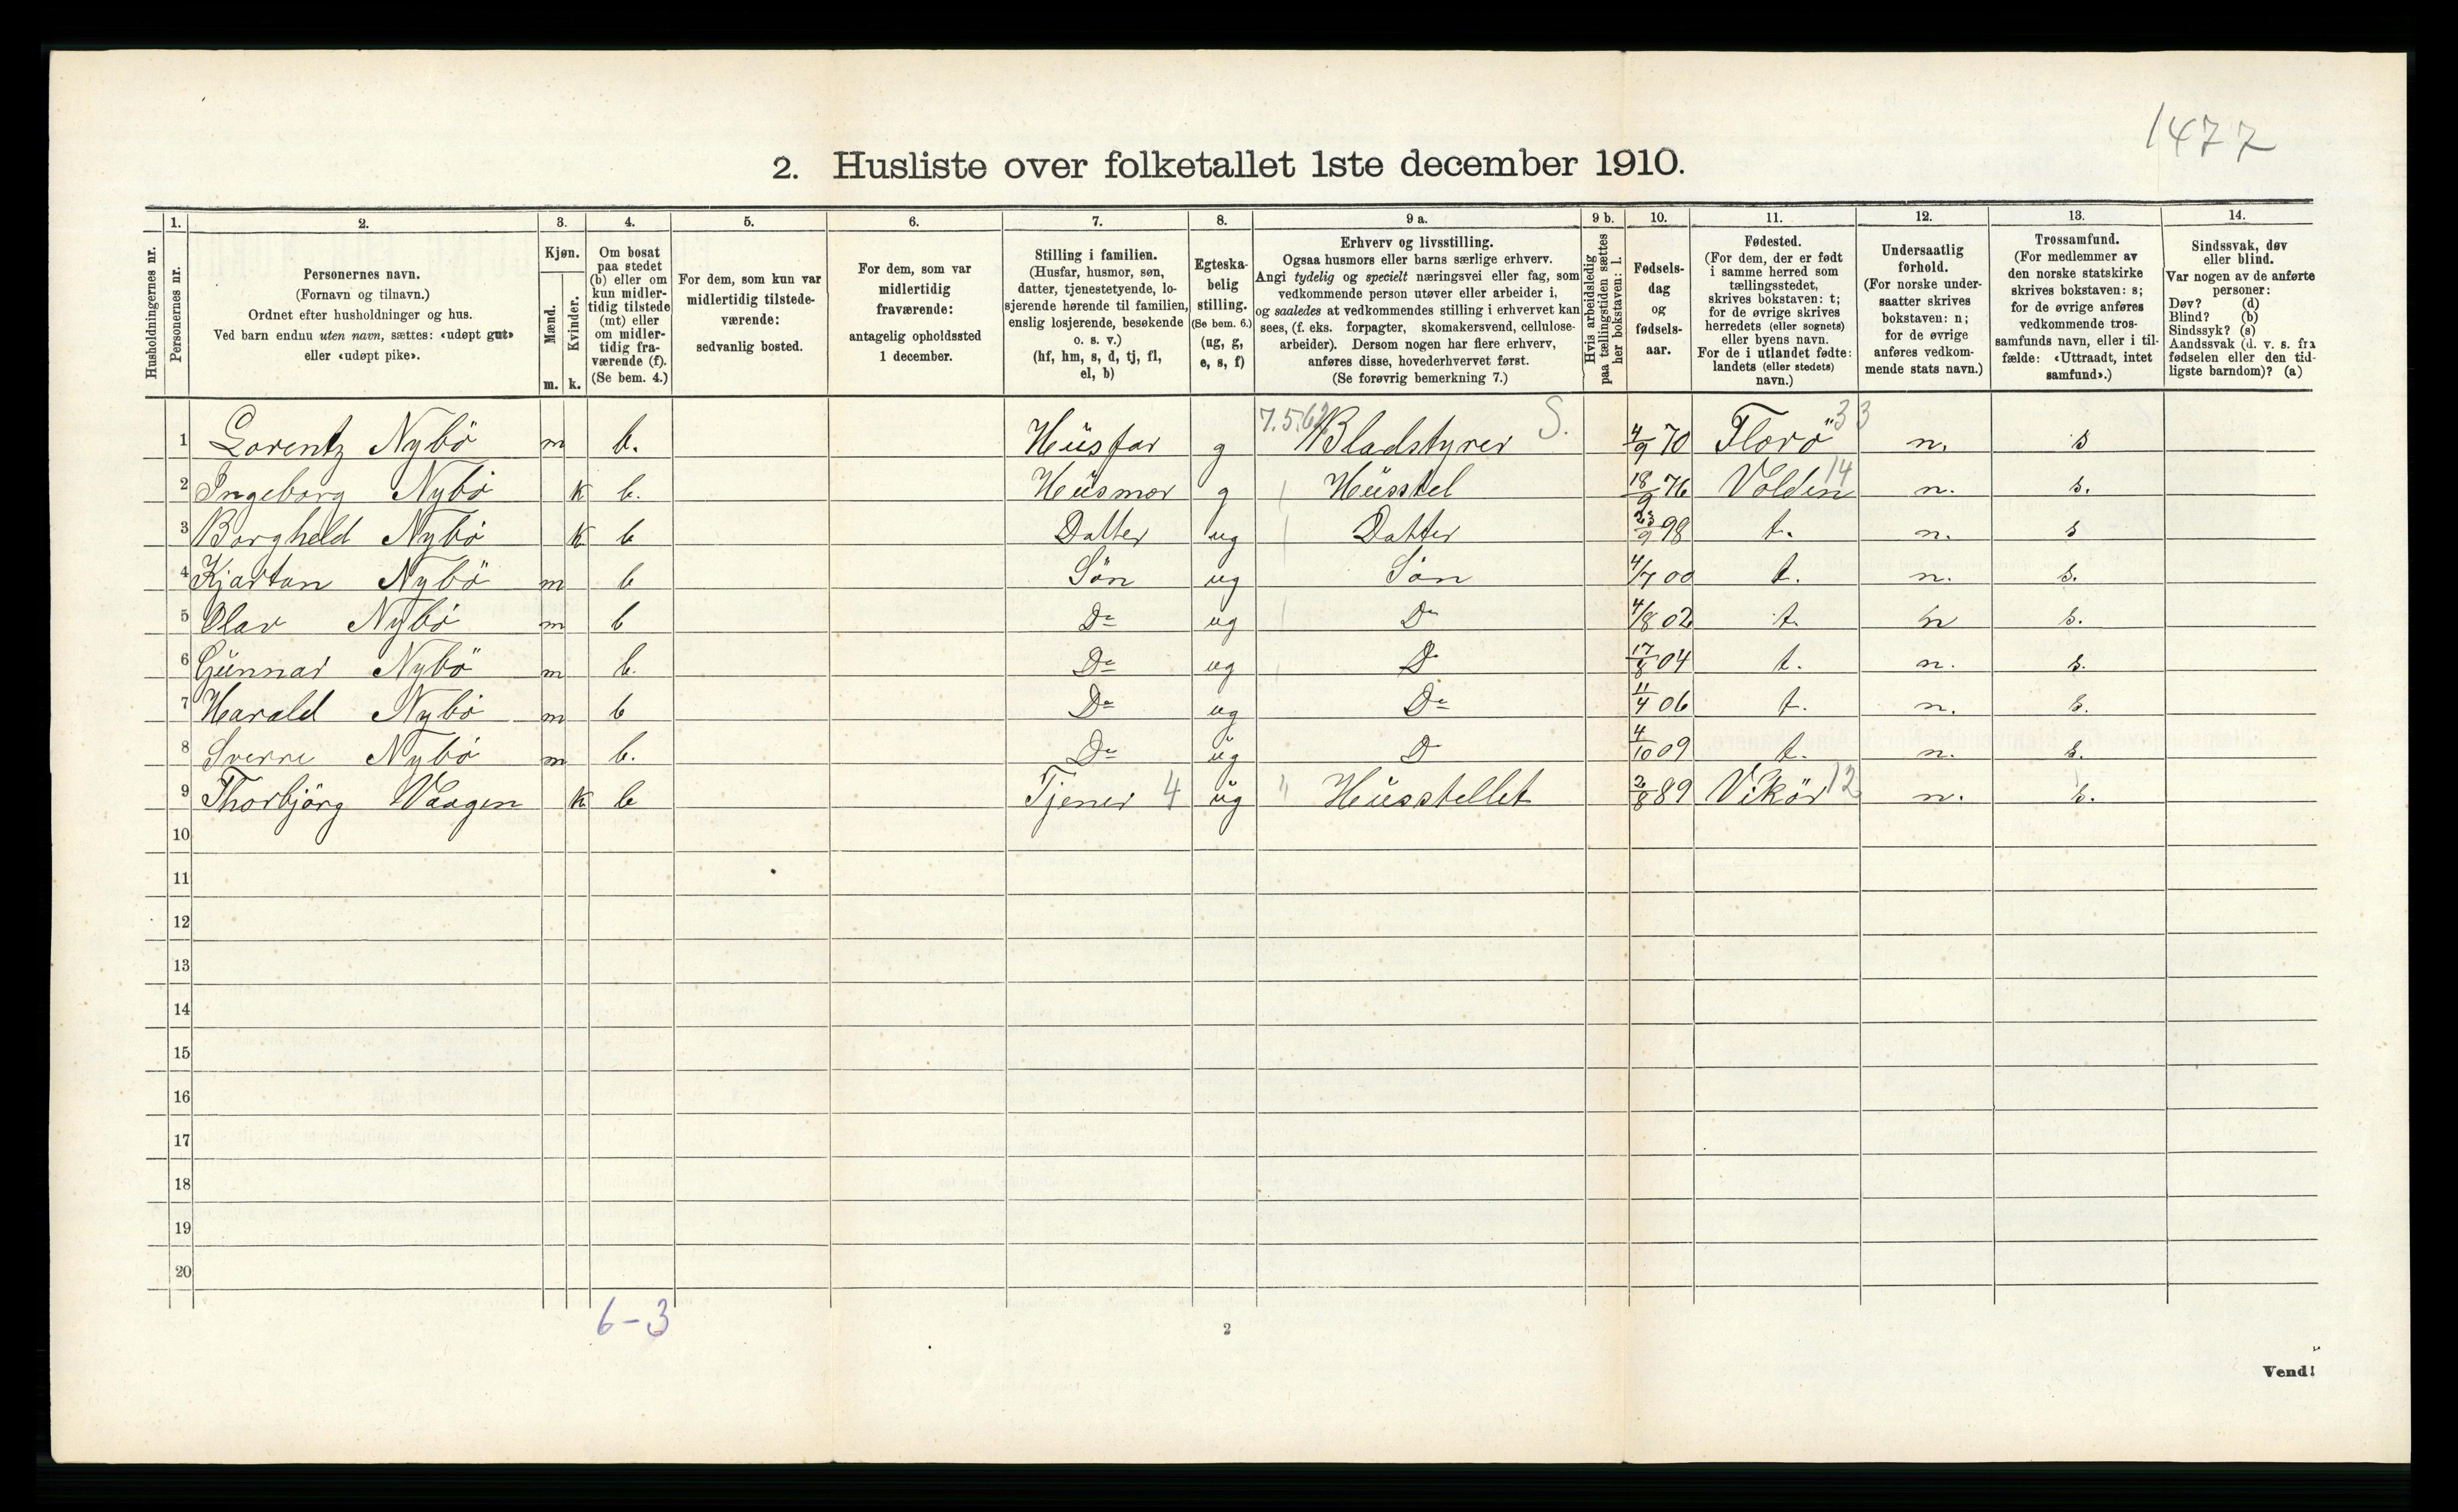 1477
2. Husliste over folketallet 1ste december 1910.
1. 2. 3. 4. 5. 6. 7. 8. 9 a. 9 b. 10. 11. 12. 13. 14.
Husholdningernes nr.
Personernes nr.
Personernes navn.
(Fornavn og tilnavn.)
Ordnet efter husholdninger og hus.
Ved barn endnu uten navn, sættes: «udøpt gut»
eller «udøpt pike».
Kjøn.
Mænd.
Kvinder.
m. k.
Om bosat
paa stedet
(b) eller om
kun midler-
tidig tilstede
(mt) eller
om midler-
tidig fra-
værende (f).
(Se bem. 4.)
For dem, som kun var
midlertidig tilstede-
værende:
sedvanlig bosted.
For dem, som var
midlertidig
fraværende:
antagelig opholdssted
1 december.
Stilling i familien.
(Husfar, husmor, søn,
datter, tjenestetyende, lo-
sjerende hørende til familien,
enslig losjerende, besøkende
o. s. v.)
(hf, hm, s, d, tj, fl,
el, b)
Egteska-
belig
stilling.
(Se bem. 6.)
(ug, g,
e, s, f)
Erhverv og livsstilling.
Ogsaa husmors eller barns særlige erhverv.
Angi tydelig og specielt næringsvei eller fag, som
vedkommende person utøver eller arbeider i,
og saaledes at vedkommendes stilling i erhvervet kan
sees, (f. eks. forpagter, skomakersvend, cellulose-
arbeider). Dersom nogen har flere erhverv,
anføres disse, hovederhvervet først.
(Se forøvrig bemerkning 7.)
Hvis arbeidsledig
paa tællingstiden sættes
her bokstaven: l.
Fødsels-
dag
og
fødsels-
aar.
Fødested.
(For dem, der er født
i samme herred som
tællingsstedet,
skrives bokstaven: t;
for de øvrige skrives
herredets (eller sognets)
eller byens navn.
For de i utlandet fødte:
landets (eller stedets)
navn.)
Undersaatlig
forhold.
(For norske under-
saatter skrives
bokstaven: n;
for de øvrige
anføres vedkom-
mende stats navn.)
Trossamfund.
(For medlemmer av
den norske statskirke
skrives bokstaven: s;
for de øvrige anføres
vedkommende tros-
samfunds navn, eller i til-
fælde: «Uttraadt, intet
samfund».)
Sindssvak, døv
eller blind.
Var nogen av de anførte
personer:
Døv? (d)
Blind? (b)
Sindssyk? (s)
Aandssvak (d. v. s. fra
fødselen eller den tid-
ligste barndom)? (a)
1 Lorentz Nybö m b. Husfar g 7.5.62 Bladstyrer S. 4/9 70 Florö 33 n. s
2 Ingeborg Nybö k b. Husmor g Husstel 18/9 76 Volden 14 n. s.
3 Borghild Nybö k b Datter ug Datter 23/9 98 t. n. s
4 Kjartan Nybö m b Sön ug Sön 4/7 00 t. n. s.
5 Olav Nybö m b Do ug Do 4/8 02 t. n s.
6 Gunnar Nybö m b. Do ug Do 17/8 04 t. n. s.
7 Harald Nybö m b Do ug Do 11/4 06 t. n. s.
8 Sverre Nybö m b. Do ug D 4/10 09 t. n. s.
9 Thorbjörg Vaagen k b Tjener 4 ug " Husstellet 2/8 89 Vikör 12 n. s.
10
11
12
13
14
15
16
17
18
19
20
6-3
2
Vend!